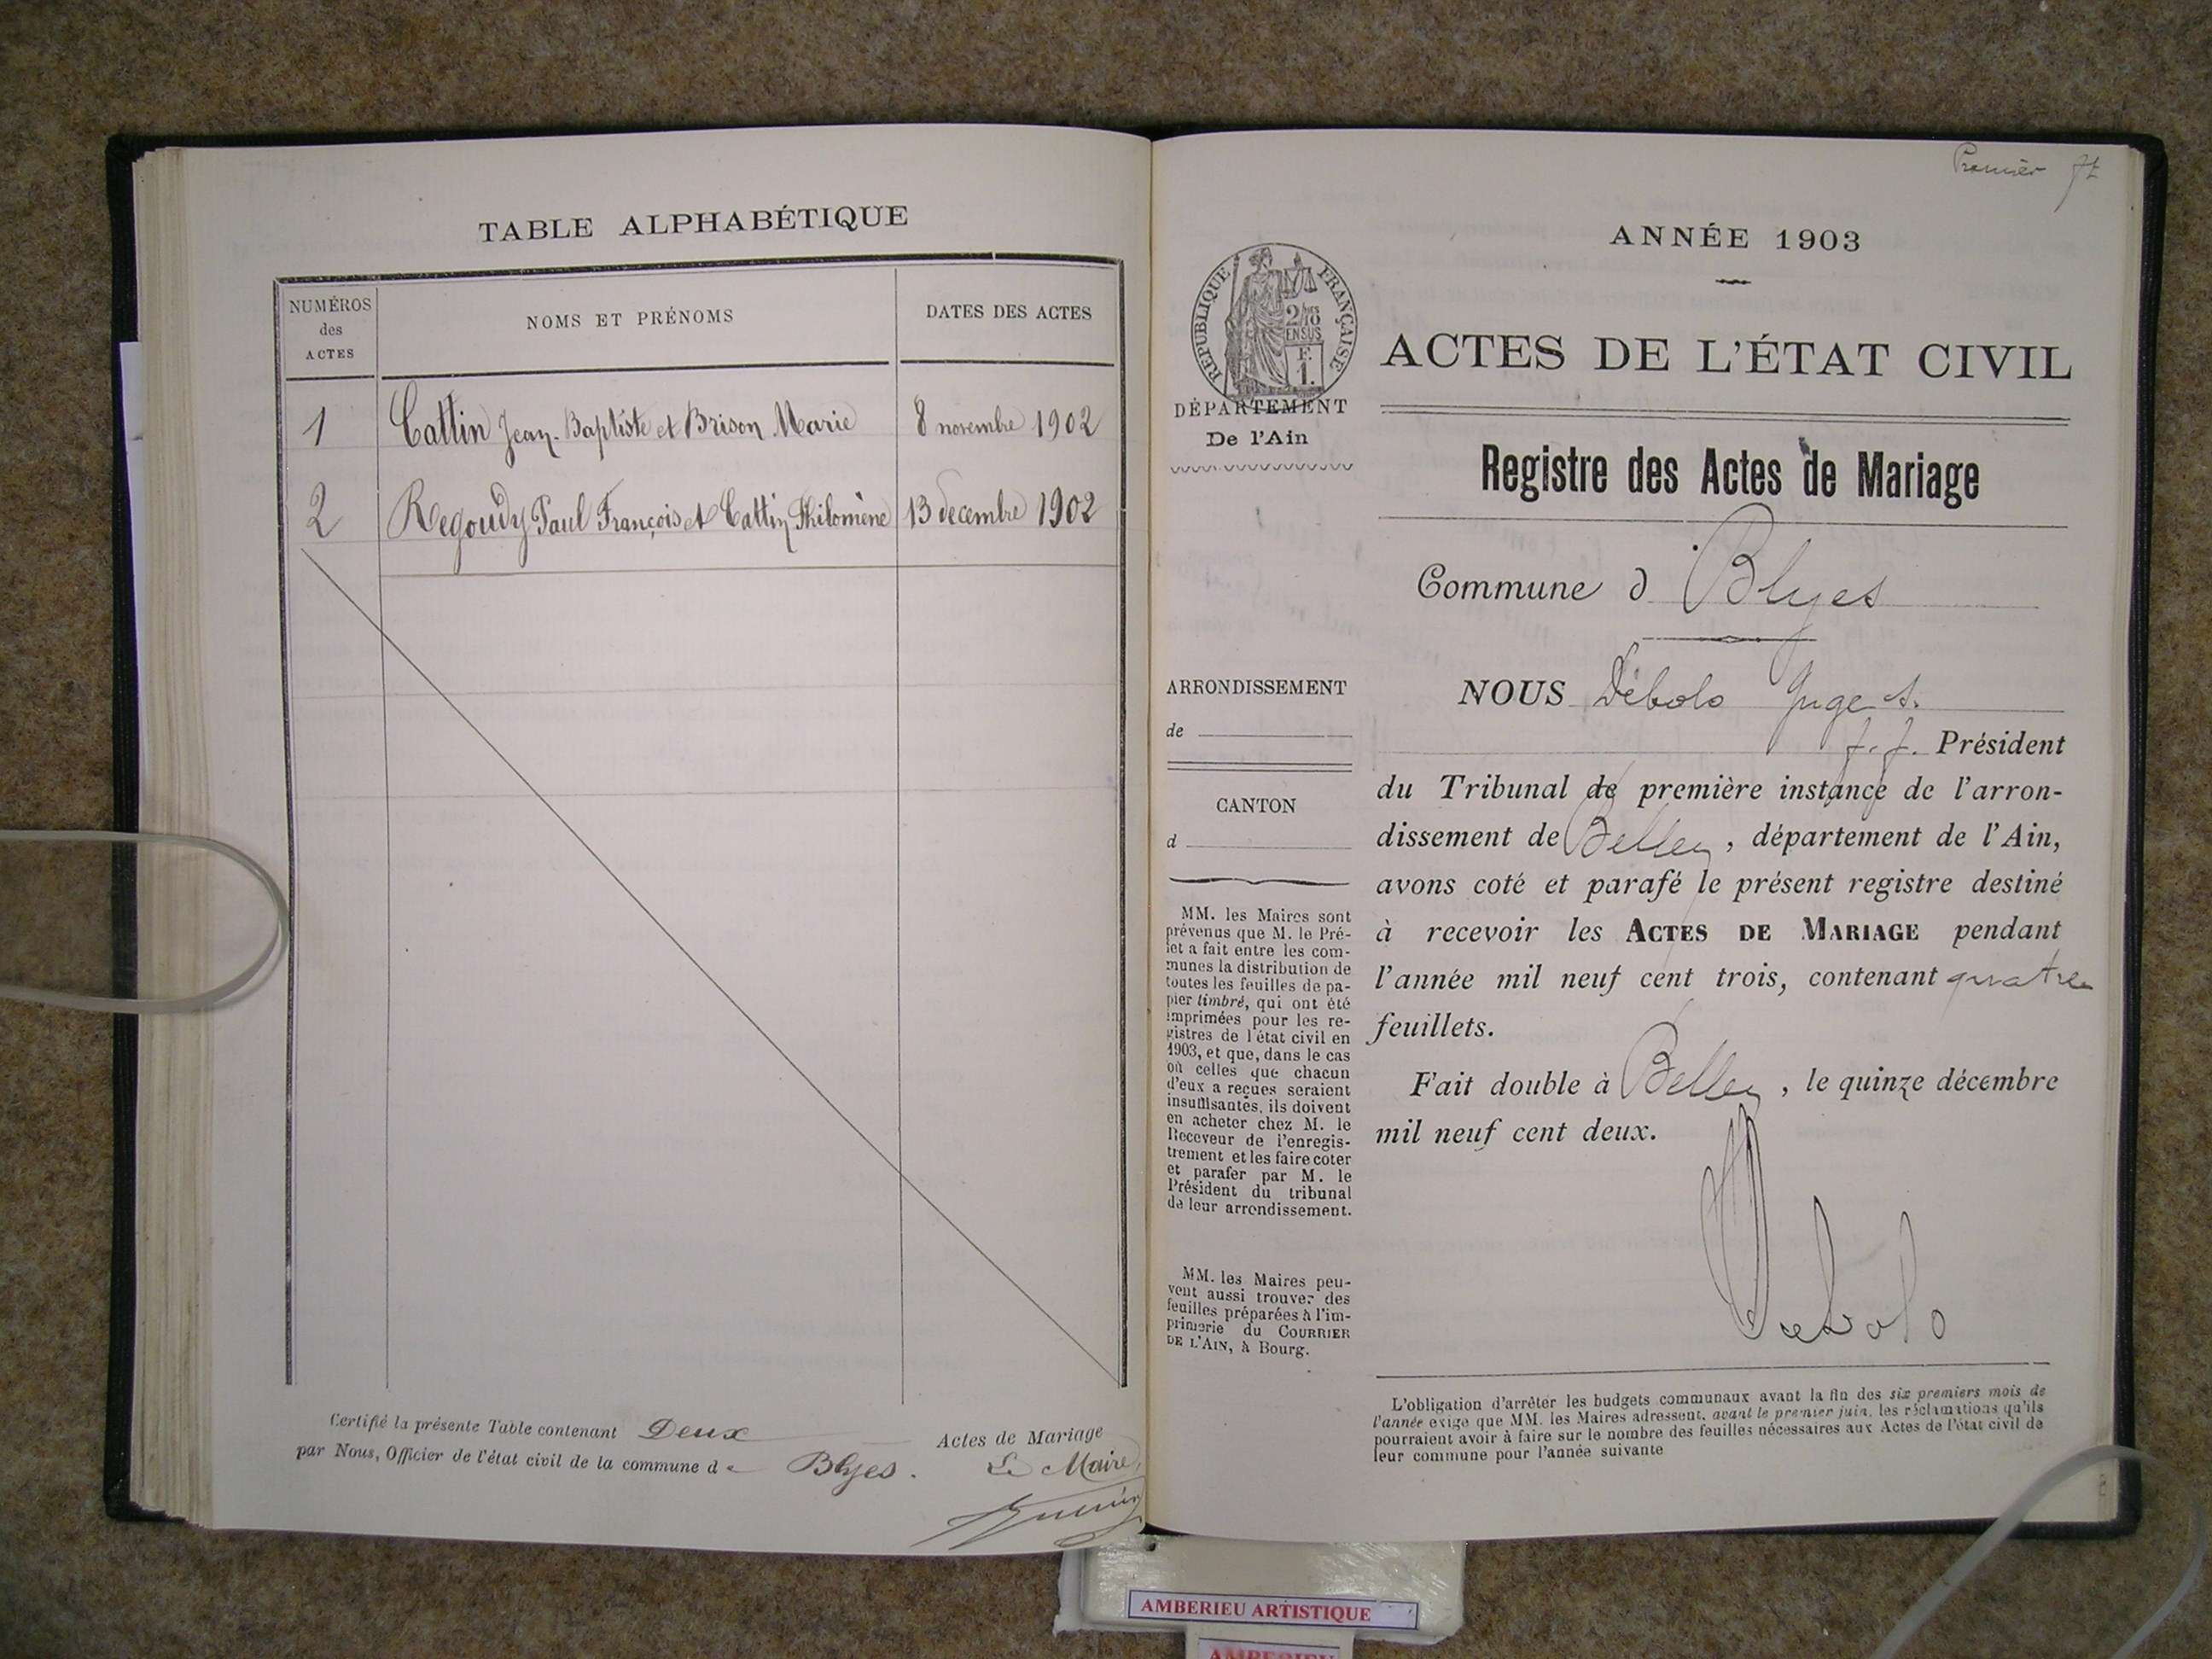 TABLE ALPHABÉTIQUE
NUMÉROS
des
ACTES
NOMS ET PRÉNOMS
DATES DES ACTES
1 Cattin Jean-Baptiste et Brison Marie 8 novembre 1902
2 Regoudy Paul François et Cattin Philomène 13 decembre 1902
Certifié la présente Table contenant Deux Actes de Mariage
par Nous, Officier de l'état civil de la commune de Blyes. Le Maire,
Premier
ANNÉE 1903
RÉPUBLIQUE FRANÇAISE
2/10
EN SUS
F.
1.
ACTES DE L'ÉTAT CIVIL
DÉPARTEMENT
De l'Ain
Registre des Actes de Mariage
Commune d Blyes
ARRONDISSEMENT
de
CANTON
d
MM. les Maires sont
prévenus que M. le Pré-
fet a fait entre les com-
munes la distribution de
toutes les feuilles de pa-
pier timbré, qui ont été
imprimées pour les re-
gistres de l'état civil en
1903, et que, dans le cas
où celles que chacun
d'eux a reçues seraient
insuffisantes, ils doivent
en acheter chez M. le
Receveur de l'enregis-
trement et les faire coter
et parafer par M. le
Président du tribunal
de leur arrondissement.
MM. les Maires peu-
vent aussi trouver des
feuilles préparées à l'im-
primerie du COURRIER
DE L'AIN, à Bourg.
NOUS Debolo Juge S.
f. f. Président
du Tribunal de première instance de l'arron-
dissement de Belley, département de l'Ain,
avons coté et parafé le présent registre destiné
à recevoir les ACTES DE MARIAGE pendant
l'année mil neuf cent trois, contenant quatre
feuillets.
Fait double à Belley, le quinze décembre
mil neuf cent deux.
Debolo
L'obligation d'arrêter les budgets communaux avant la fin des six premiers mois de
l'année exige que MM. les Maires adressent, avant le premier juin, les réclamations qu'ils
pourraient avoir à faire sur le nombre des feuilles nécessaires aux Actes de l'état civil de
leur commune pour l'année suivante
AMBERIEU ARTISTIQUE
AMBERIEU